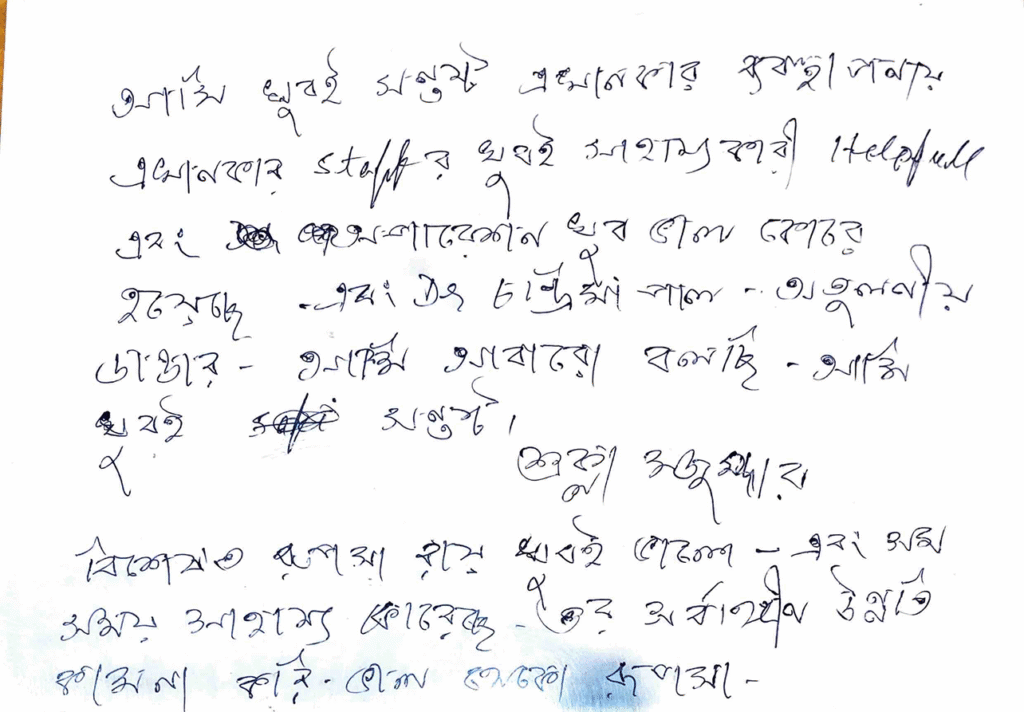 আমি খুবই সন্তুষ্ট এখানকার ব্যবস্থাপনায়
এখানকার staffর খুবই সাহায্যকারী Helpfull
এবং অপারেশান খুব ভাল কোরে
হয়েছে - এবং Dr চন্দ্রিমা পাল - অতুলনীয়
ডাক্তার - আমি আবারো বলছি - আমি
খুবই সন্তুষ্ট।
শুক্লা মজুমদার
বিশেষত রূপসা রায় খুবই ভালো - এবং সব
সময় সাহায্য কোরেছে - ওর সর্বাঙ্গীন উন্নতি
কামনা করি - ভাল থেকো রূপসা -